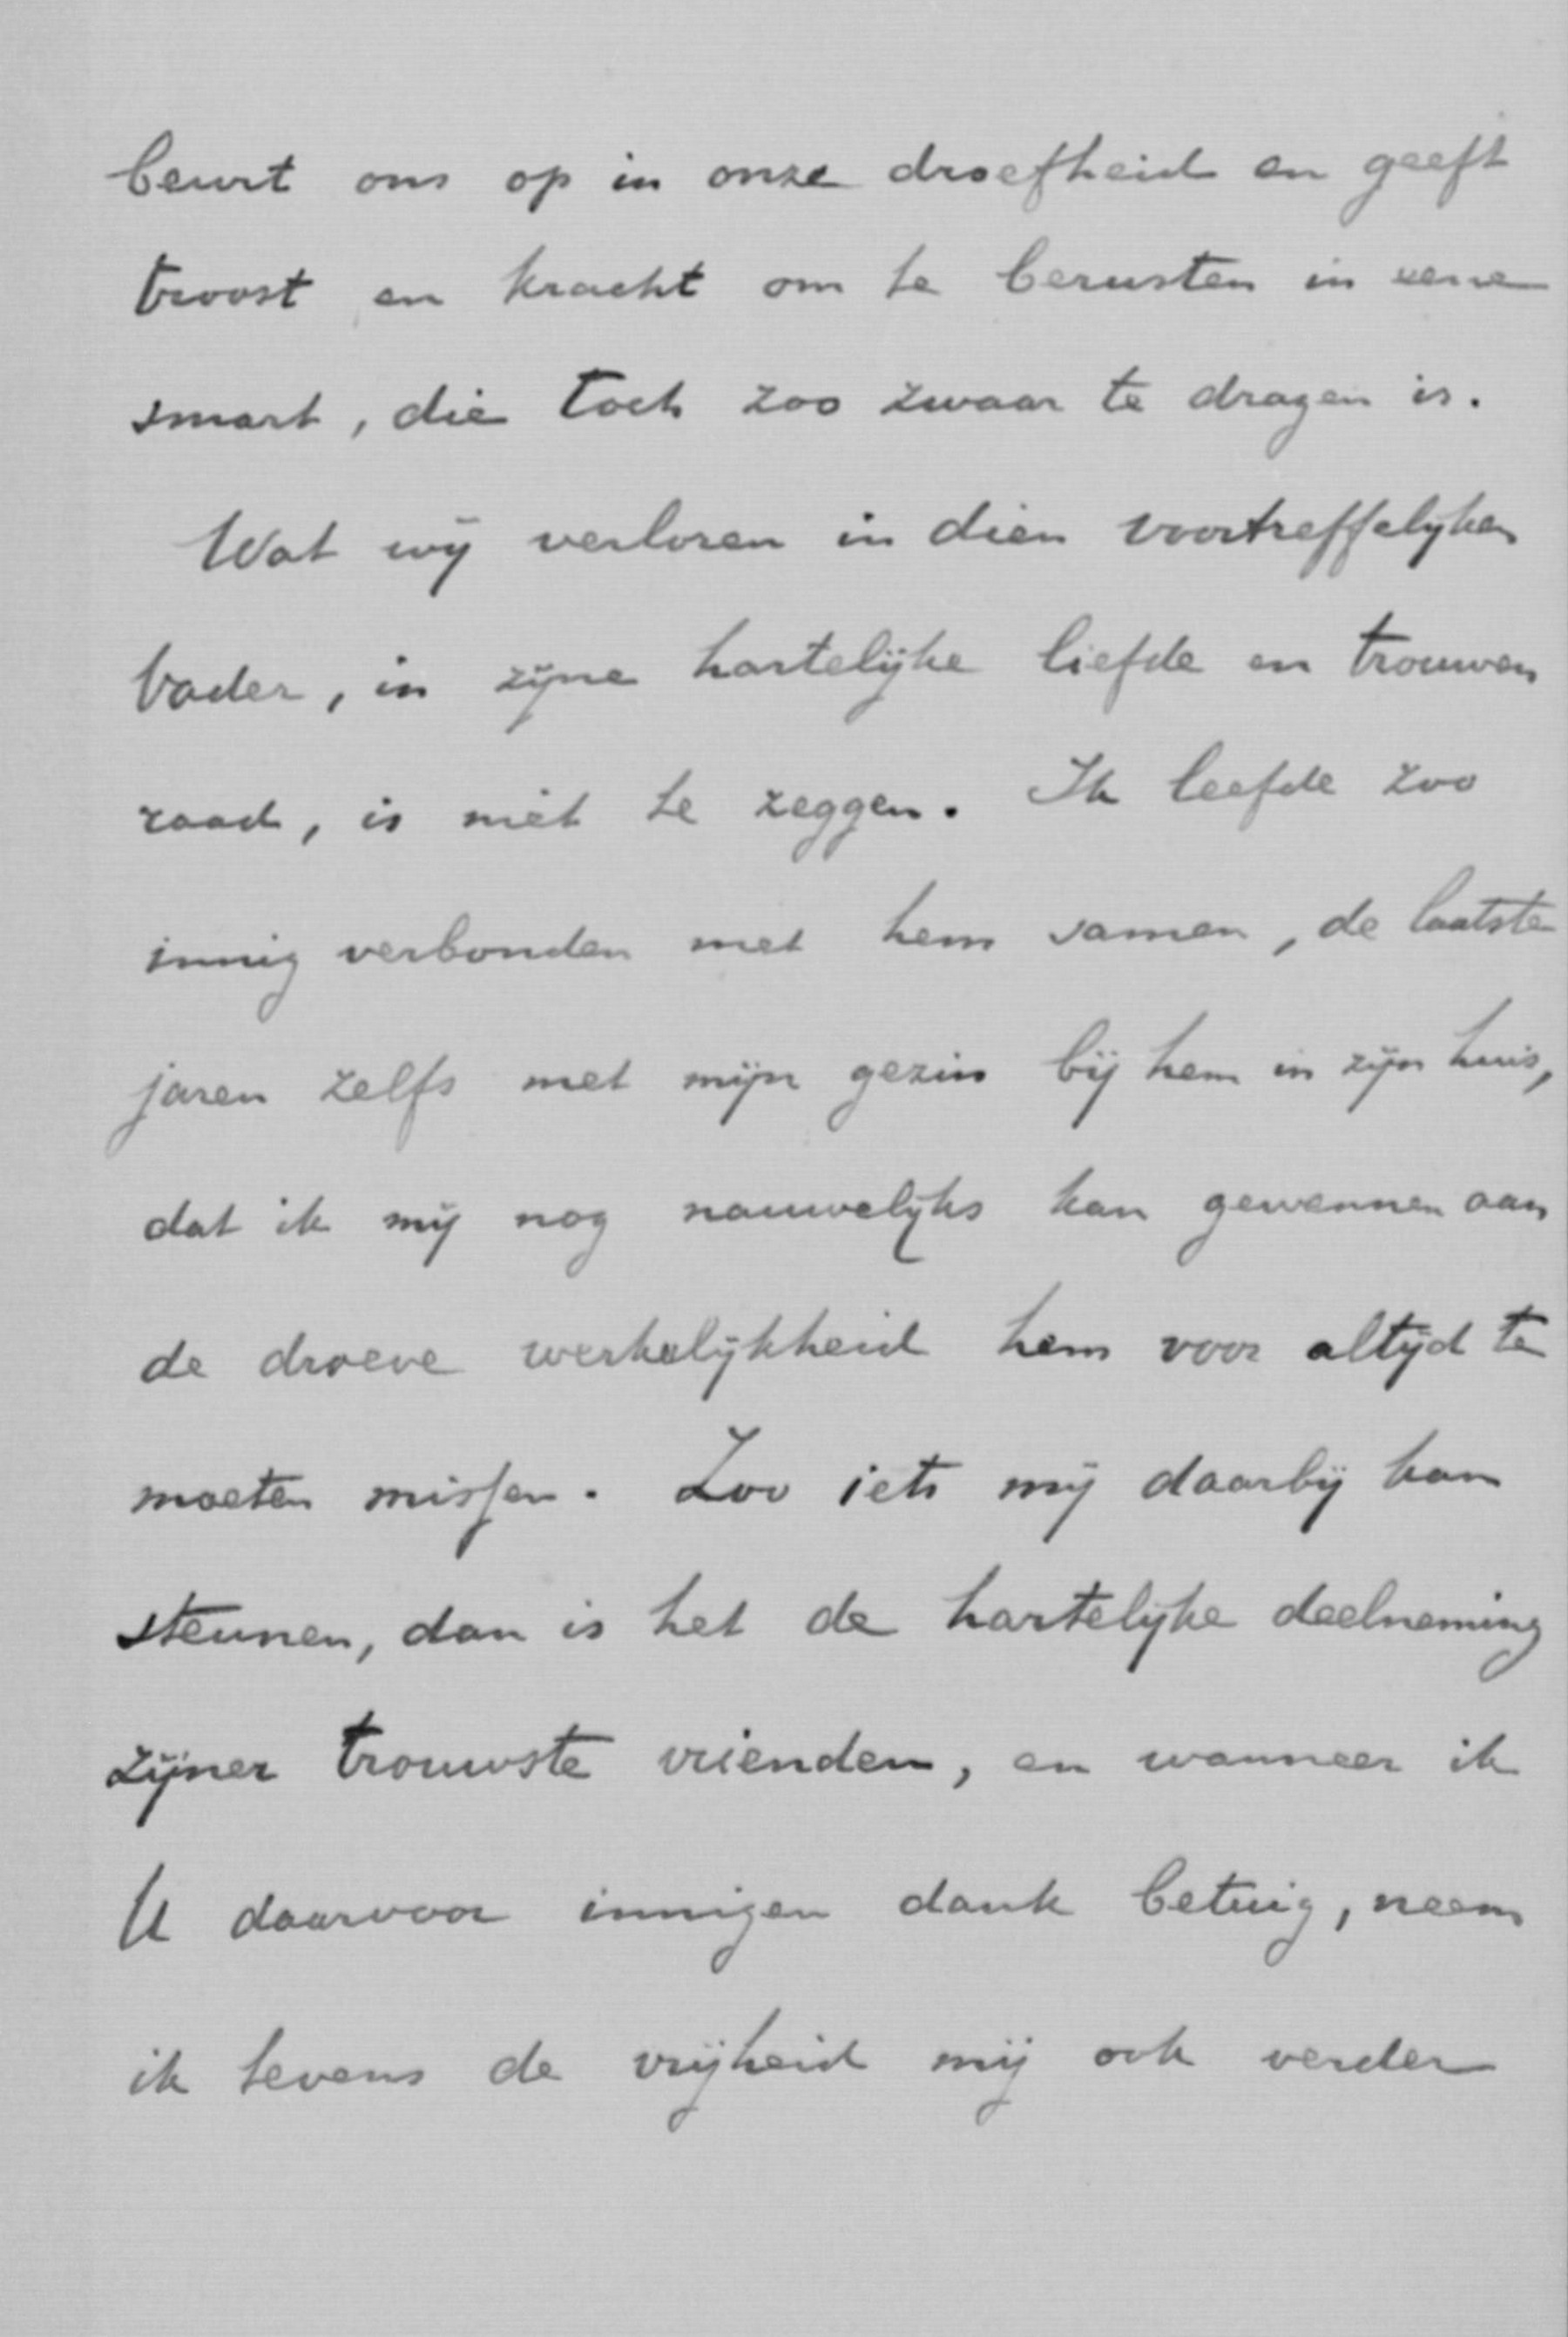 beurt ons op in onze droefheid en geeft
troost en kracht om te berusten in eene
smart, die toch zoo zwaar te dragen is.
Wat wij verloren in dien voortreffelijken
Vader, in zijne hartelijke liefde en trouwen
raad, is niet te zeggen. Ik leefde zoo
innig verbonden met hem samen, de laatste
jaren zelfs met mijn gezin bij hem in zijn huis,
dat ik mij nog nauwelijks kan gewennen aan
de droeve werkelijkheid hem voor altijd te
moeten missen. Zoo iets mij daarbij kan
steunen, dan is het de hartelijke deelneming
zijner trouwste vrienden, en wanneer ik
U daarvoor innigen dank betuig, neem
ik tevens de vrijheid mij ook verder